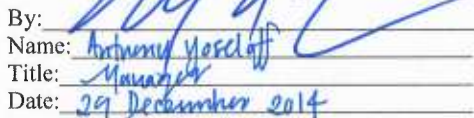 By:
Name: Anthony Yoseloff
Title: Manager
Date: 29 December 2014